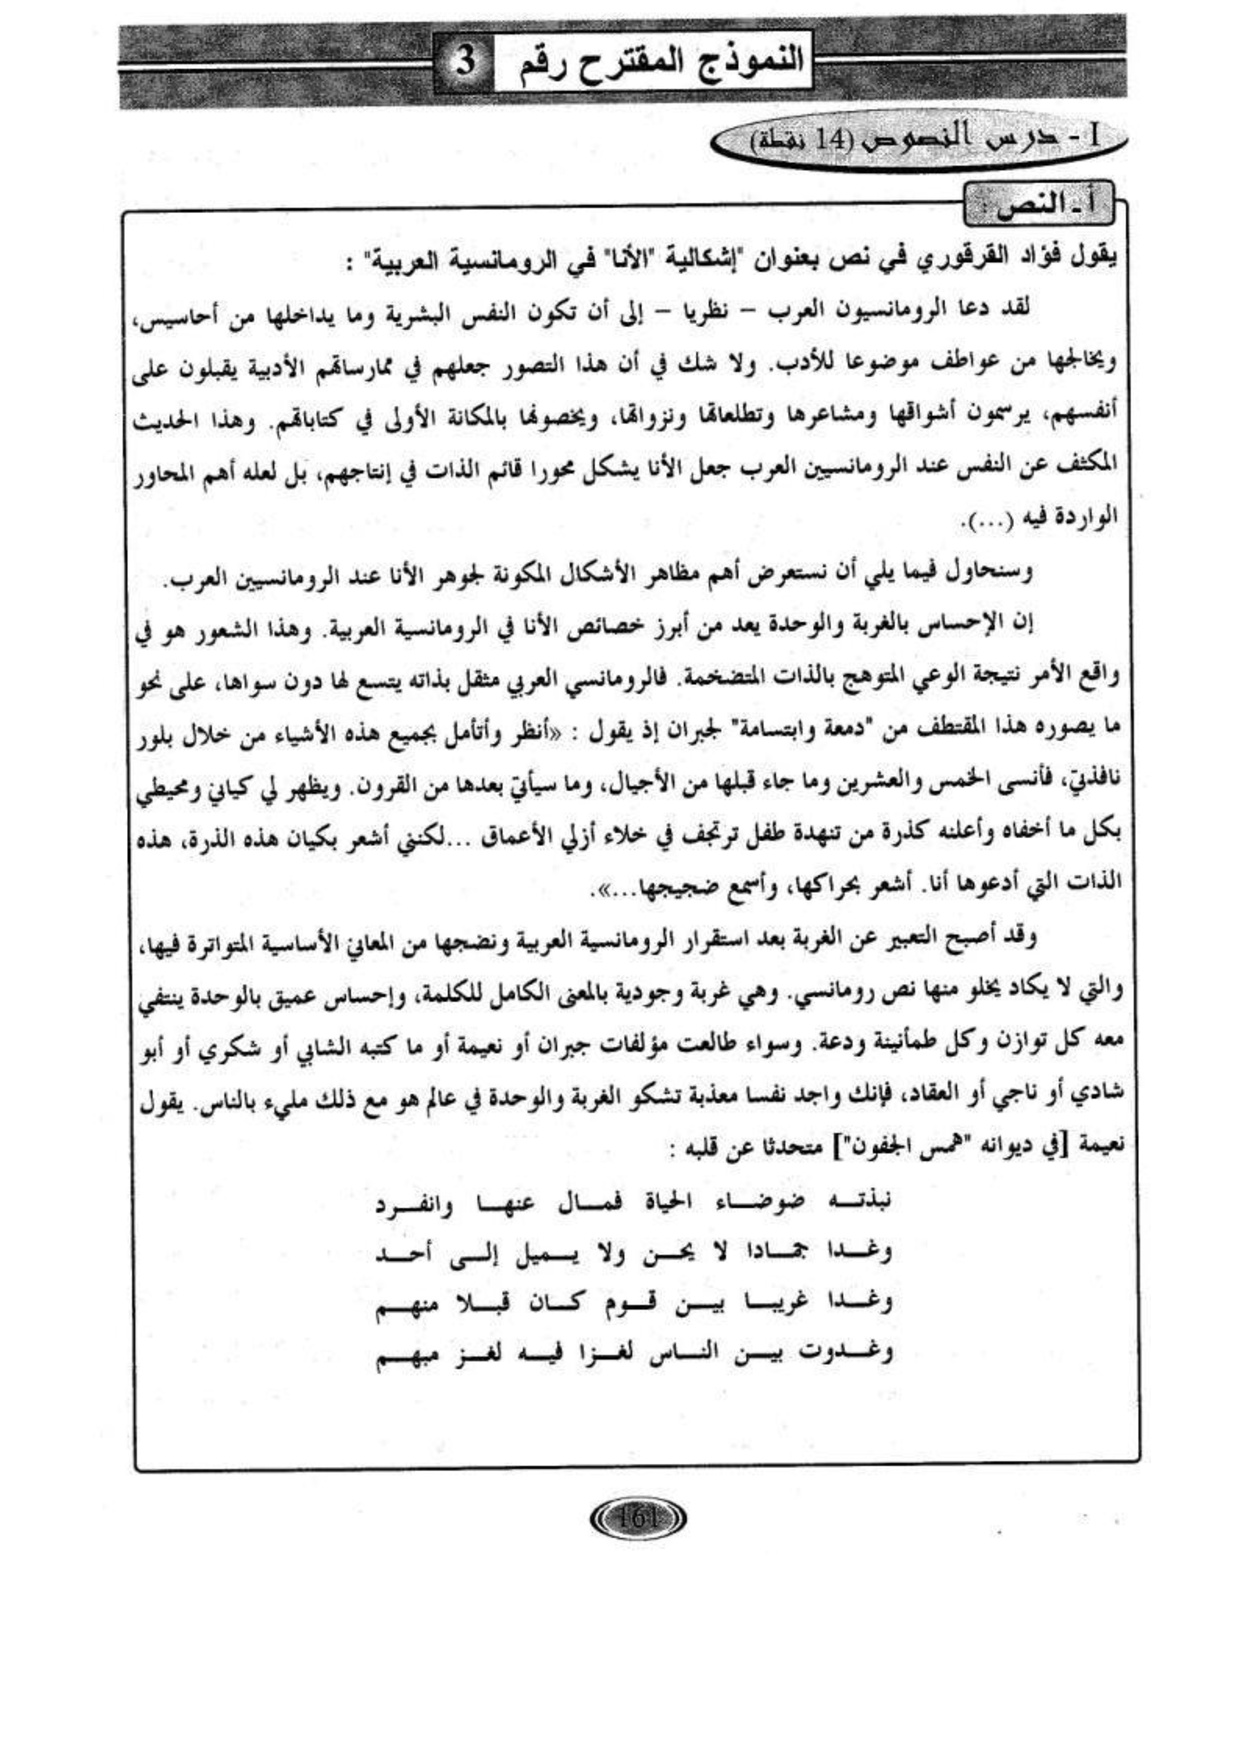 النموذج المقترح رقم 3
I - درس النصوص (14 نقطة)
أ ـ النص :
يقول فؤاد القرقوري في نص بعنوان "إشكالية "الأنا" في الرومانسية العربية" :
لقد دعا الرومانسيون العرب – نظريا – إلى أن تكون النفس البشرية وما يداخلها من أحاسيس،
ويخالجها من عواطف موضوعا للأدب. ولا شك في أن هذا التصور جعلهم في ممارساتهم الأدبية يقبلون على
أنفسهم، يرسمون أشواقها ومشاعرها وتطلعاتها ونزواتها، ويخصونها بالمكانة الأولى في كتاباتهم. وهذا الحديث
المكثف عن النفس عند الرومانسيين العرب جعل الأنا يشكل محورا قائم الذات في إنتاجهم، بل لعله أهم المحاور
الواردة فيه (...).
وسنحاول فيما يلي أن نستعرض أهم مظاهر الأشكال المكونة لجوهر الأنا عند الرومانسيين العرب.
إن الإحساس بالغربة والوحدة يعد من أبرز خصائص الأنا في الرومانسية العربية. وهذا الشعور هو في
واقع الأمر نتيجة الوعي المتوهج بالذات المتضخمة. فالرومانسي العربي مثقل بذاته يتسع لها دون سواها، على نحو
ما يصوره هذا المقتطف من "دمعة وابتسامة" لجبران إذ يقول : «أنظر وأتأمل بجميع هذه الأشياء من خلال بلور
نافذتي، فأنسى الخمس والعشرين وما جاء قبلها من الأجيال، وما سيأتي بعدها من القرون. ويظهر لي كياني ومحيطي
بكل ما أخفاه وأعلنه كذرة من تنهدة طفل ترتجف في خلاء أزلي الأعماق ...لكنني أشعر بكيان هذه الذرة، هذه
الذات التي أدعوها أنا. أشعر بحراكها، وأسمع ضجيجها...».
وقد أصبح التعبير عن الغربة بعد استقرار الرومانسية العربية ونضجها من المعاني الأساسية المتواترة فيها،
والتي لا يكاد يخلو منها نص رومانسي. وهي غربة وجودية بالمعنى الكامل للكلمة، وإحساس عميق بالوحدة ينتفي
معه كل توازن وكل طمأنينة ودعة. وسواء طالعت مؤلفات جبران أو نعيمة أو ما كتبه الشابي أو شكري أو أبو
شادي أو ناجي أو العقاد، فإنك واجد نفسا معذبة تشكو الغربة والوحدة في عالم هو مع ذلك مليء بالناس. يقول
نعيمة [في ديوانه "همس الجفون"] متحدثا عن قلبه :
نبذتـــه ضوضـــاء الحياة فمـــال عنهـــا وانفـــرد
وغـــدا جمـــادا لا يحـــن ولا يـــميل إلـــى أحـــد
وغـــدا غريبـــا بيـــن قـــوم كـــان قبـــلا منهـــم
وغـــدوت بيـــن النـــاس لغـــزا فيـــه لغـــز مبهـــم
161